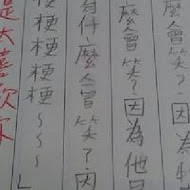 麼會笑？因為
麼會笑？因為他
有什麼會笑？因
梗梗梗梗～～～」
是大喜歡你